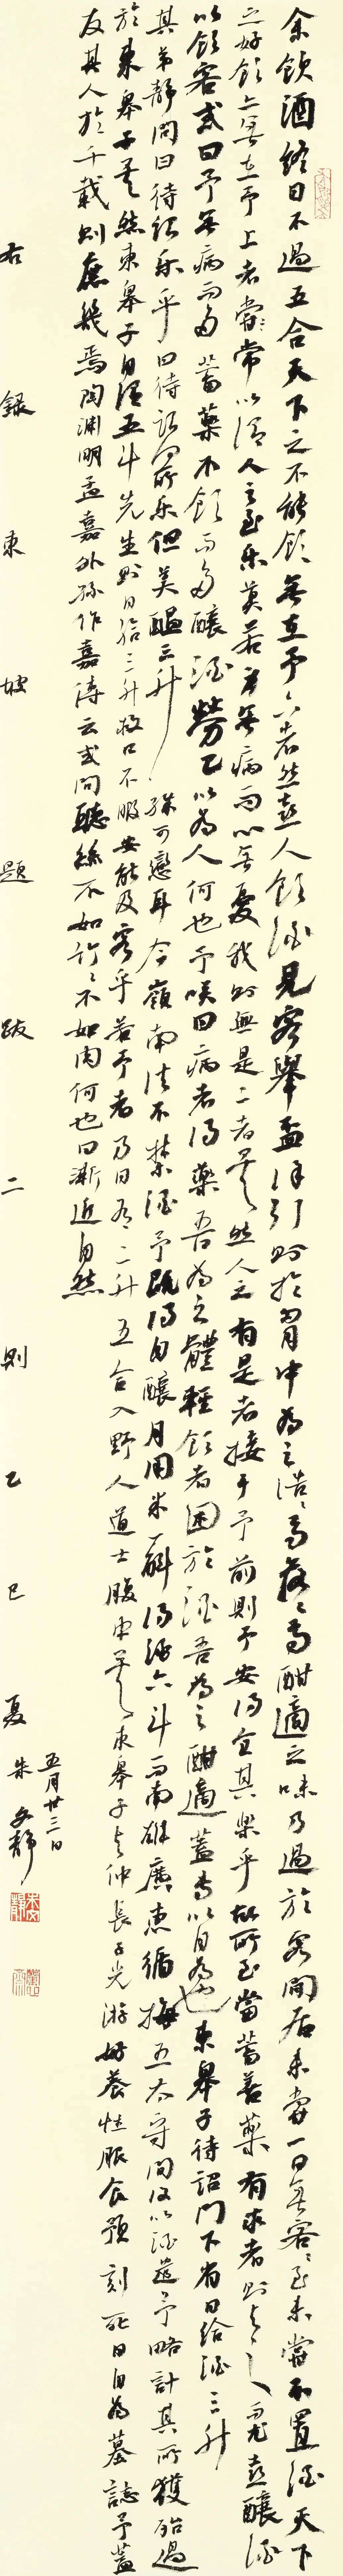 余飲酒終日不過五合天下之不能飲無在予下者然喜人飲酒見客舉盃徐引則於胷中為之浩浩焉落落焉酣適之味乃過於客閒居未嘗一日無客客至未嘗不置酒天下
之好飲亦無在予上者常以謂人之至樂莫若身無病而心無憂我則無是二者矣然人之有是者接于予前則予安得全其樂乎故所至當蓄善藥有求者則與之尤喜釀酒
以飲客或曰予無病而多蓄藥不飲而多釀酒勞己以為人何也予咲曰病者得藥吾為之體輕飲者困於酒吾為之酣適蓋專以自為也東皋子待詔門下省日給酒三升
其弟靜問曰待詔樂乎曰待詔何所樂但美醞三升殊可戀耳今嶺南法不禁酒予既得自釀月用米一斛得酒六斗而南雄廣惠循梅五太守間復以酒遺予略計其所獲殆過
於東皋子矣然東皋子自謂五斗先生則日給三升救口不暇安能及客乎若予者乃日有二升五合入野人道士腹中矣東皋子與仲長子光游好養性服食預刻死日自為墓誌予蓋
友其人於千載則庶幾焉陶淵明孟嘉外孫作嘉傳云或問聽絲不如竹竹不如肉何也曰漸近自然
右錄東坡題跋二則乙巳夏朱文靜
五月廿三日